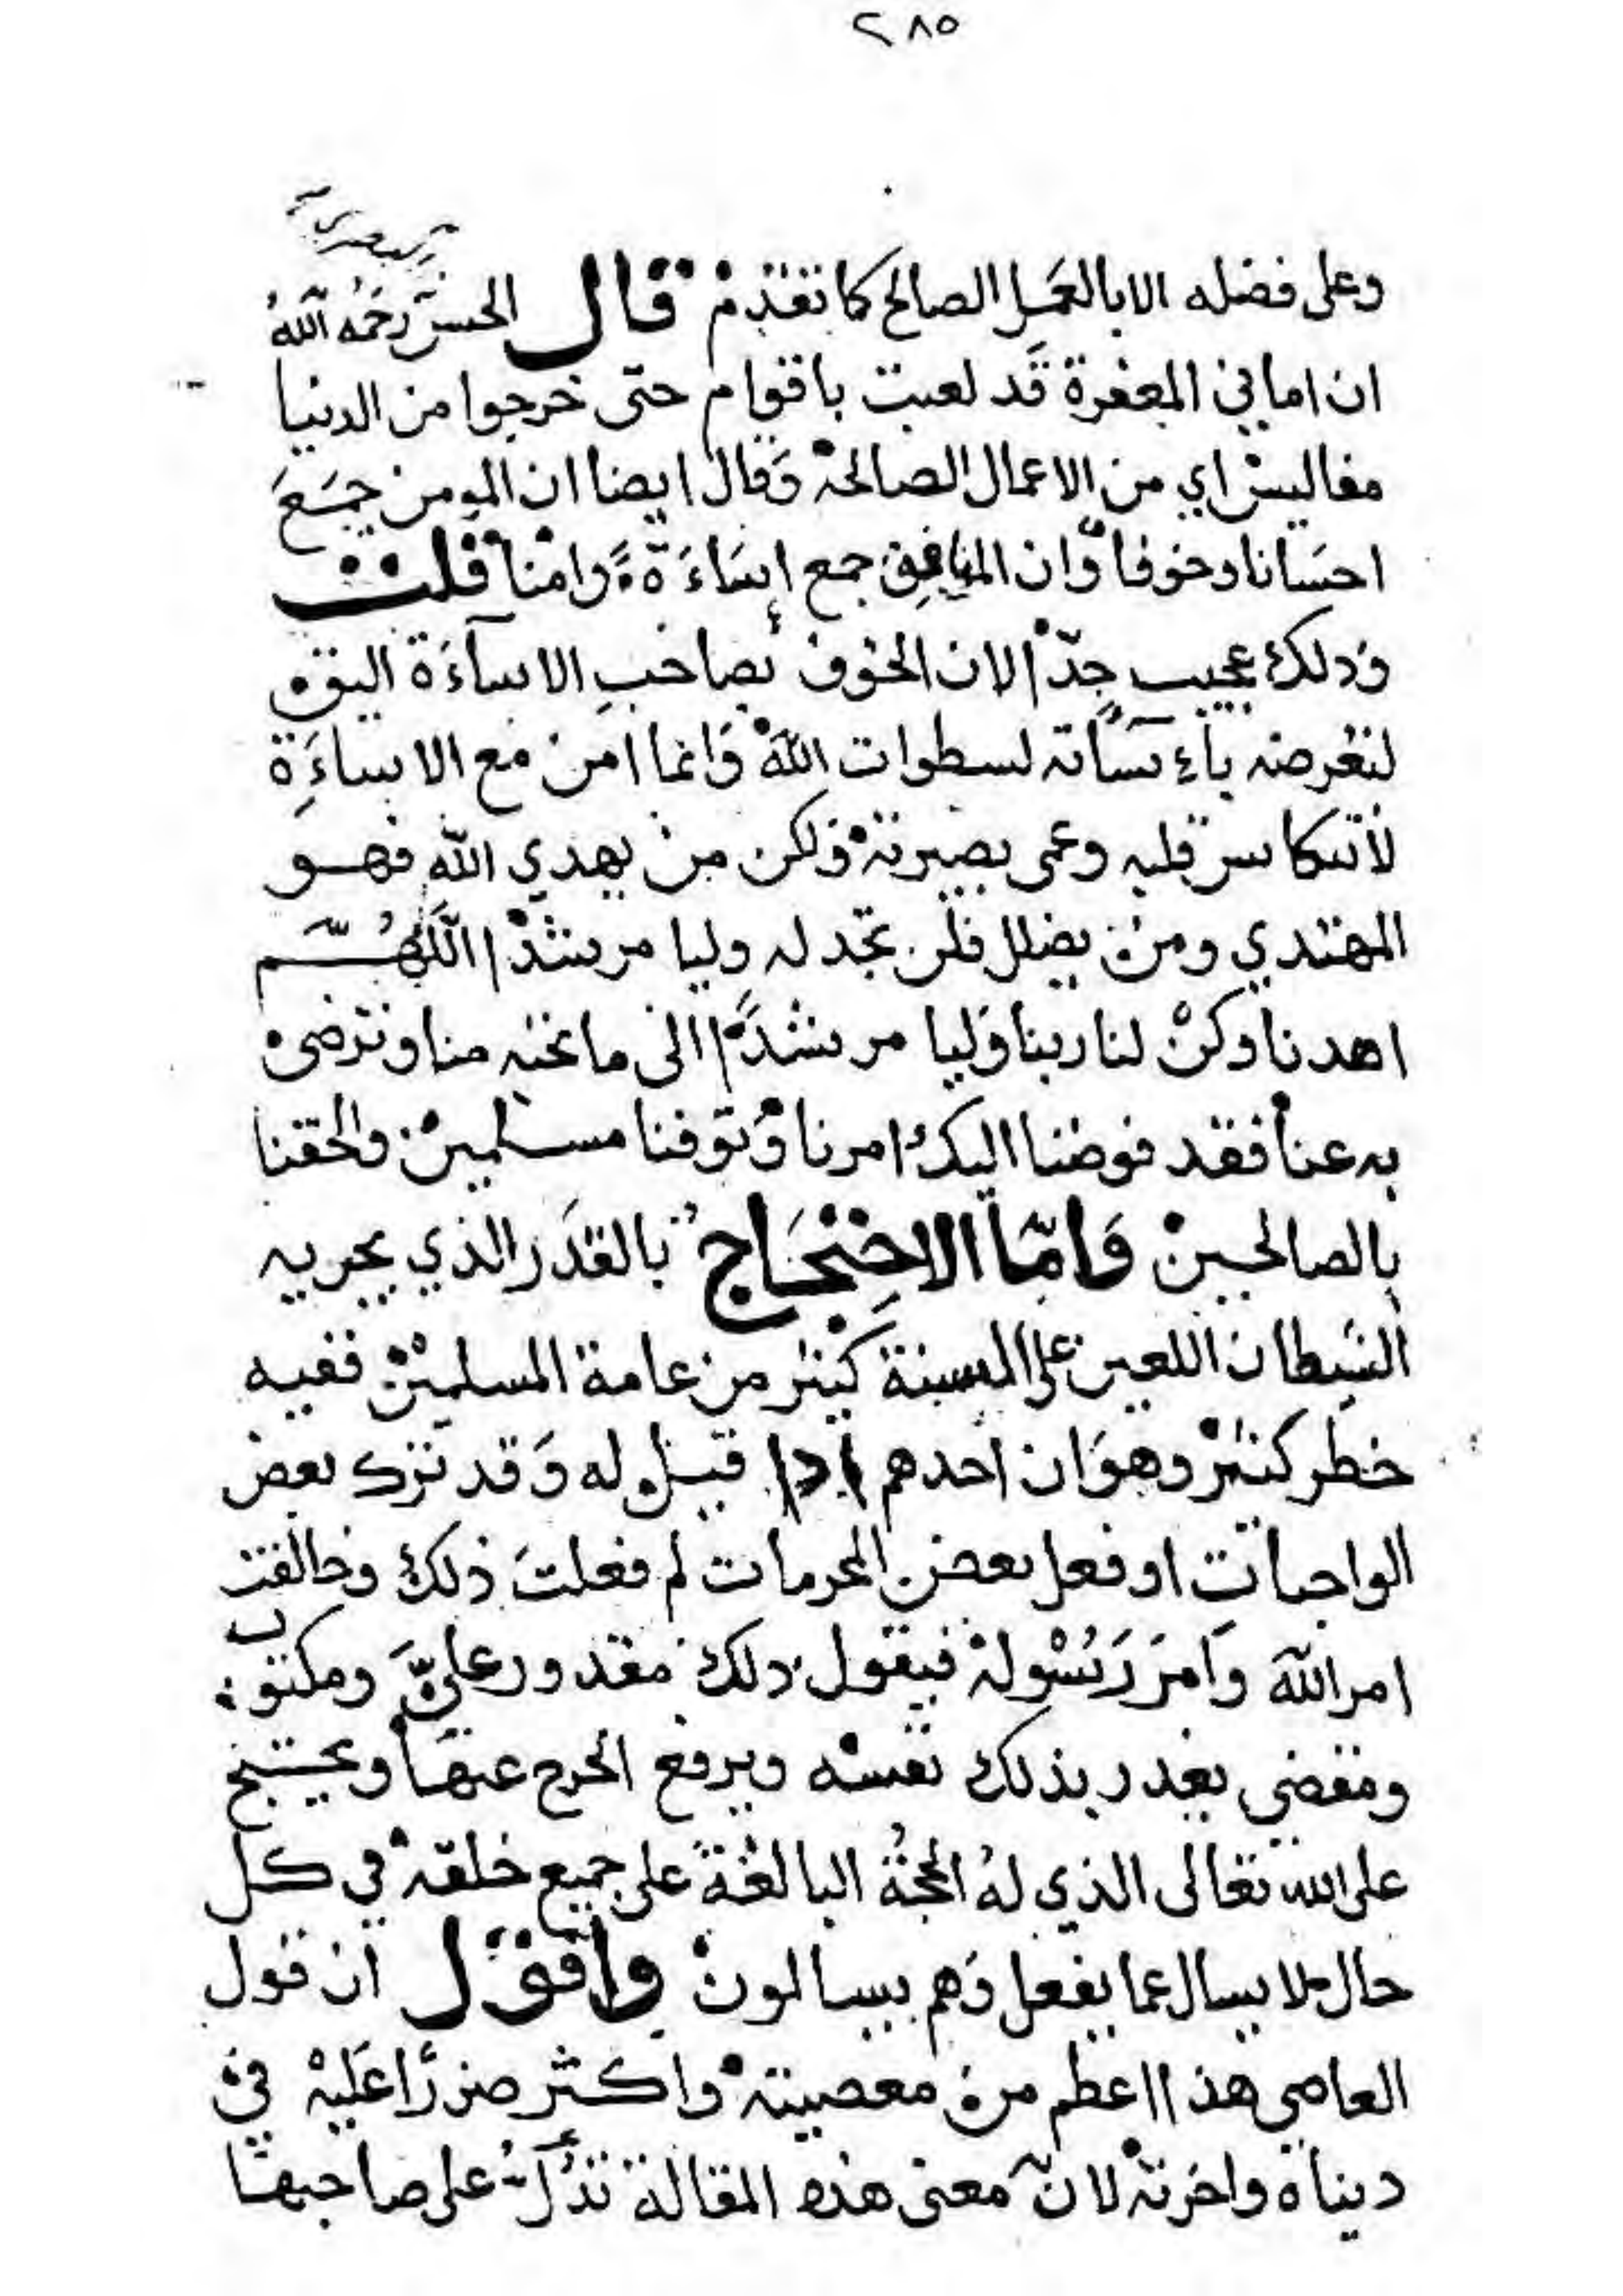 ٢٨٥
البصري
وعلى فضله الا بالعمل الصالح كما تقدم قال الحسن رحمه الله
ان اماني المغفرة قد لعبت باقوام حتى خرجوا من الدنيا
مفاليس اي من الاعمال الصالحة وقال ايضا ان المومن جمع
احسانا وخوفا وان المنافق جمع اساءة وامنا قلت
وذلك عجيب جدا لان الخوف بصاحب الاساءة اليق
لتعرضه باءسآته لسطوات الله وانما امن مع الاساءة
لانتكاس قلبه وعمى بصيرته ولكن من يهدي الله فهو
المهتدي ومن يضلل فلن تجد له وليا مرشدا اللهم
اهدنا وكن لنا ربنا وليا مرشدا الى ما تحبه منا وترضى
به عنا فقد فوضنا اليك امرنا وتوفنا مسلمين والحقنا
بالصالحين واما الاحتجاج بالقدر الذي يجريه
الشيطان اللعين على السنة كثير من عامة المسلمين ففيه
خطر كثير وهو ان احدهم اذا قيل له وقد ترك بعض
الواجبات او فعل بعض المحرمات لم فعلت ذلك وخالفت
امر الله وامر رسوله فيقول ذلك مقدور علي ومكتوب
ومقضي يعذر بذلك نفسه ويرفع الحرج عنها ويحتج
على الله تعالى الذي له الحجة البالغة على جميع خلقه في كل
حال لا يسال عما يفعل وهم يسالون واقول ان قول
العاصي هذا اعظم من معصيته واكثر ضررا عليه في
ديناه واخرته لان معنى هذه المقالة تدل على صاحبها